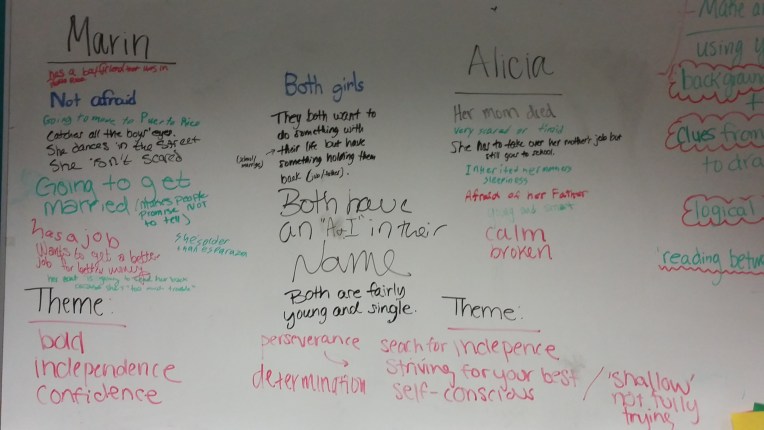 Marin
has a boyfriend that lives in
Not afraid
Going to move to Puerto Rico
Catches all the boys' eyes.
She dances in the street
She isn't scared
Going to get
married (makes people
promise not
to tell)
has a job
Wants to get a better
job for better
Theme:
bold
independence
confidence
Both girls
They both want to
do something with
their life but have
something holding them
back
Both have
an "A & I" in their
Name
Both are fairly
young and single.
perseverance
determination
Alicia
Her mom died
very scared or timid
She has to take over her mother's job but
still goes to school.
Inherited her mamas
sleepiness
Afraid of her Father
young and smart
calm
broken
Theme:
search for indepence
striving for your best
self-conscious
/ 'shallow'
not fully
trying
Make a
using y
backgroun
+
Clues from
to dra
logical
'reading betwe